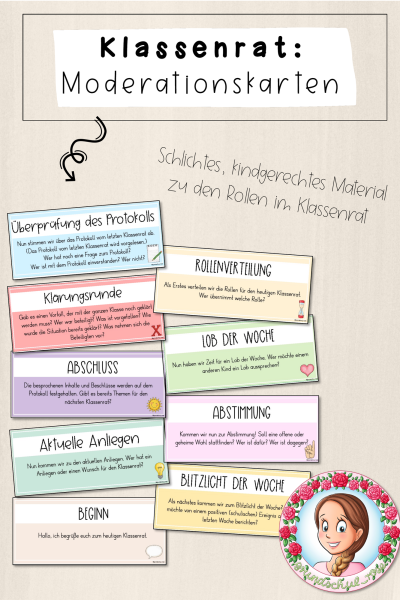 Klassenrat:
Moderationskarten
Schlichtes, kindgerechtes Material
zu den Rollen im Klassenrat
Überprüfung des Protokolls
Nun stimmen wir über das Protokoll vom letzten Klassenrat ab.
(Das Protokoll vom letzten Klassenrat wird vorgelesen.)
Wer hat noch eine Frage zum Protokoll?
Wer ist mit dem Protokoll einverstanden? Wer nicht?
ROLLENVERTEILUNG
Als Erstes verteilen wir die Rollen für den heutigen Klassenrat.
Wer übernimmt welche Rolle?
Klärungsrunde
Gab es einen Vorfall, der mit der ganzen Klasse noch geklärt
werden muss? Wer war beteiligt? Was ist vorgefallen? Wie
wurde die Situation bereits geklärt? Was nehmen sich die
Beteiligten vor?
LOB DER WOCHE
Nun haben wir Zeit für ein Lob der Woche. Wer möchte einem
anderen Kind ein Lob aussprechen?
ABSCHLUSS
Die besprochenen Inhalte und Beschlüsse werden auf dem
Protokoll festgehalten. Gibt es bereits Themen für den
nächsten Klassenrat?
ABSTIMMUNG
Kommen wir nun zur Abstimmung! Soll eine offene oder
geheime Wahl stattfinden? Wer ist dafür? Wer ist dagegen?
Aktuelle Anliegen
Nun kommen wir zu den aktuellen Anliegen. Wer hat ein
Anliegen oder einen Wunsch für den Klassenrat?
BLITZLICHT DER WOCHE
Als nächstes kommen wir zum Blitzlicht der Woche.
möchte von einem positiven (schulischen) Ereignis
letzten Woche berichten?
BEGINN
Hallo, ich begrüße euch zum heutigen Klassenrat.